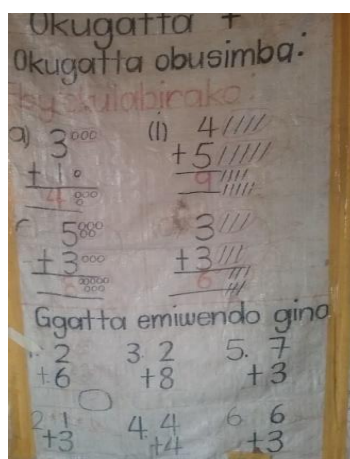 Okugatta +
Okugatta obusimba:
Ebyokulabirako:
a) 3 (i) 4
+ 1 + 5
4 9
5 3
+ 3 + 3
8 6
Ggatta emiwendo gino
1. 2 3. 2 5. 7
+ 6 + 8 + 3
2. 1 4. 4 6. 6
+3 +4 +3